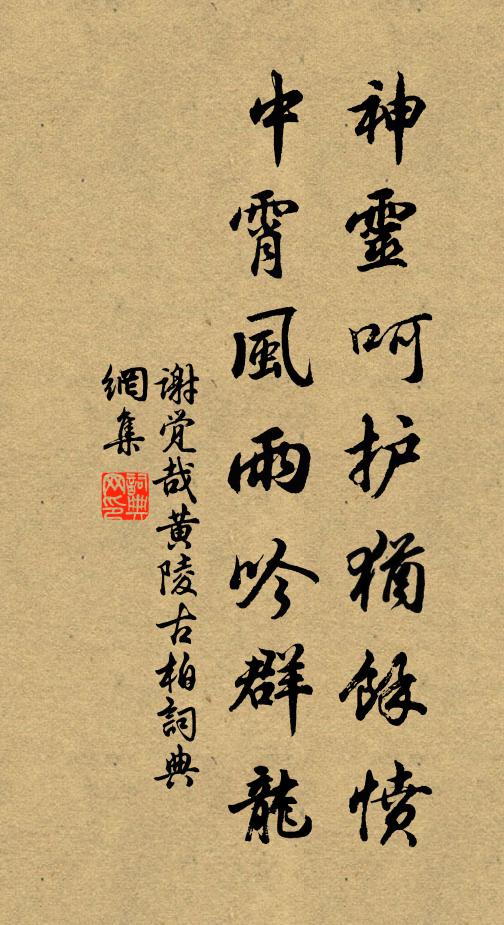 神靈呵护猶餘憤
中霄風雨吟群龍
谢觉哉黄陵古柏詞典
網集
詞典網印